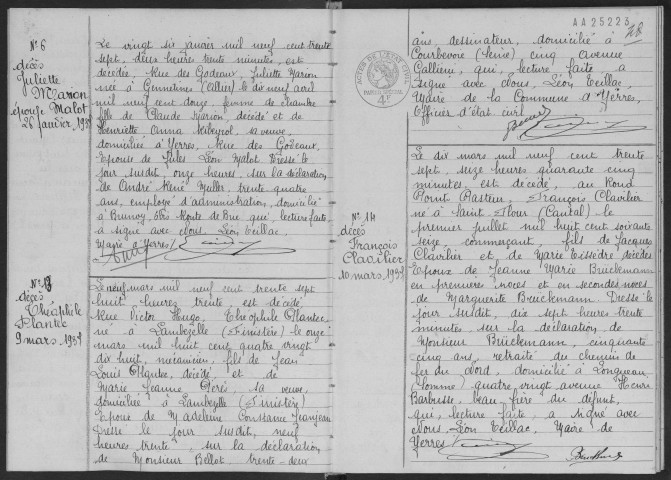 N° 6
décès
Juliette
Marion
épouse Malot
26 janvier 1937
Le vingt six janvier mil neuf cent trente
sept, deux heures trente minutes, est
décédée, Rue des Godeaux, Juliette Marion
née à Gennetines (Allier) le dix neuf avril
mil neuf cent douze, femme de chambre
fille de Claude Marion, décédé et de
Henriette Anna sa veuve,
domiciliée à Yerres, Rue des Godeaux,
Epouse de Jules Léon Malot Dressé le
jour susdit, onze heures, sur la déclaration
de André René Muller, trente quatre
ans, employé d'administration, domicilié
à Brunoy, Route de Brie qui, lecture faite
a signé avec Nous, Léon Teillac,
Maire d'Yerres
N° 13
décès
Théophile
Plantec
9 mars 1937
Le neuf mars mil neuf cent trente sept
huit heures trente, est décédé
Rue Victor Hugo, Théophile Plantec
né à Lambézelle (Finistère) le onze
mars mil huit cent quatre vingt
dix huit, mécanicien, fils de Jean
Louis Plantec, décédé, et de
Marie Jeanne Péres, sa veuve,
domiciliée à Lambezelle (Finistère)
Epoux de Madeleine Constance
Dressé le jour susdit, neuf
heures trente, sur la déclaration
de Monsieur Bellot trente-deux
AA25223
28
ans, dessinateur, domicilié à
Courbevoie (Seine) cinq avenue
Gallieni, qui, lecture faite a
signé avec Nous, Léon Teillac,
Maire de la Commune d'Yerres,
Officier d'état civil
N° 14
décès
François
Clavilier
10 mars 1937
Le dix mars mil neuf cent trente
sept, seize heures quarante cinq
minutes, est décédé, au Rond
Point Pasteur, François Clavilier
né à Saint-Flour (Cantal) le
premier juillet mil huit cent soixante
seize, commerçant, fils de Jacques
Clavilier et de Marie Tissidre, décédés
Epoux de Jeanne Marie Bruckmann
en premières noces et en secondes noces
de Marguerite Bruckmann. Dressé le
jour susdit, dix sept heures trente
minutes sur la déclaration de
Monsieur Brückmann, cinquante
cinq ans, retraité du chemin de
fer du Nord, domicilié à Longueau
(Somme) quatre vingt, avenue Henri
Barbusse, beau frère du défunt,
qui, lecture faite, a signé avec
Nous, Léon Teillac, Maire de
Yerres